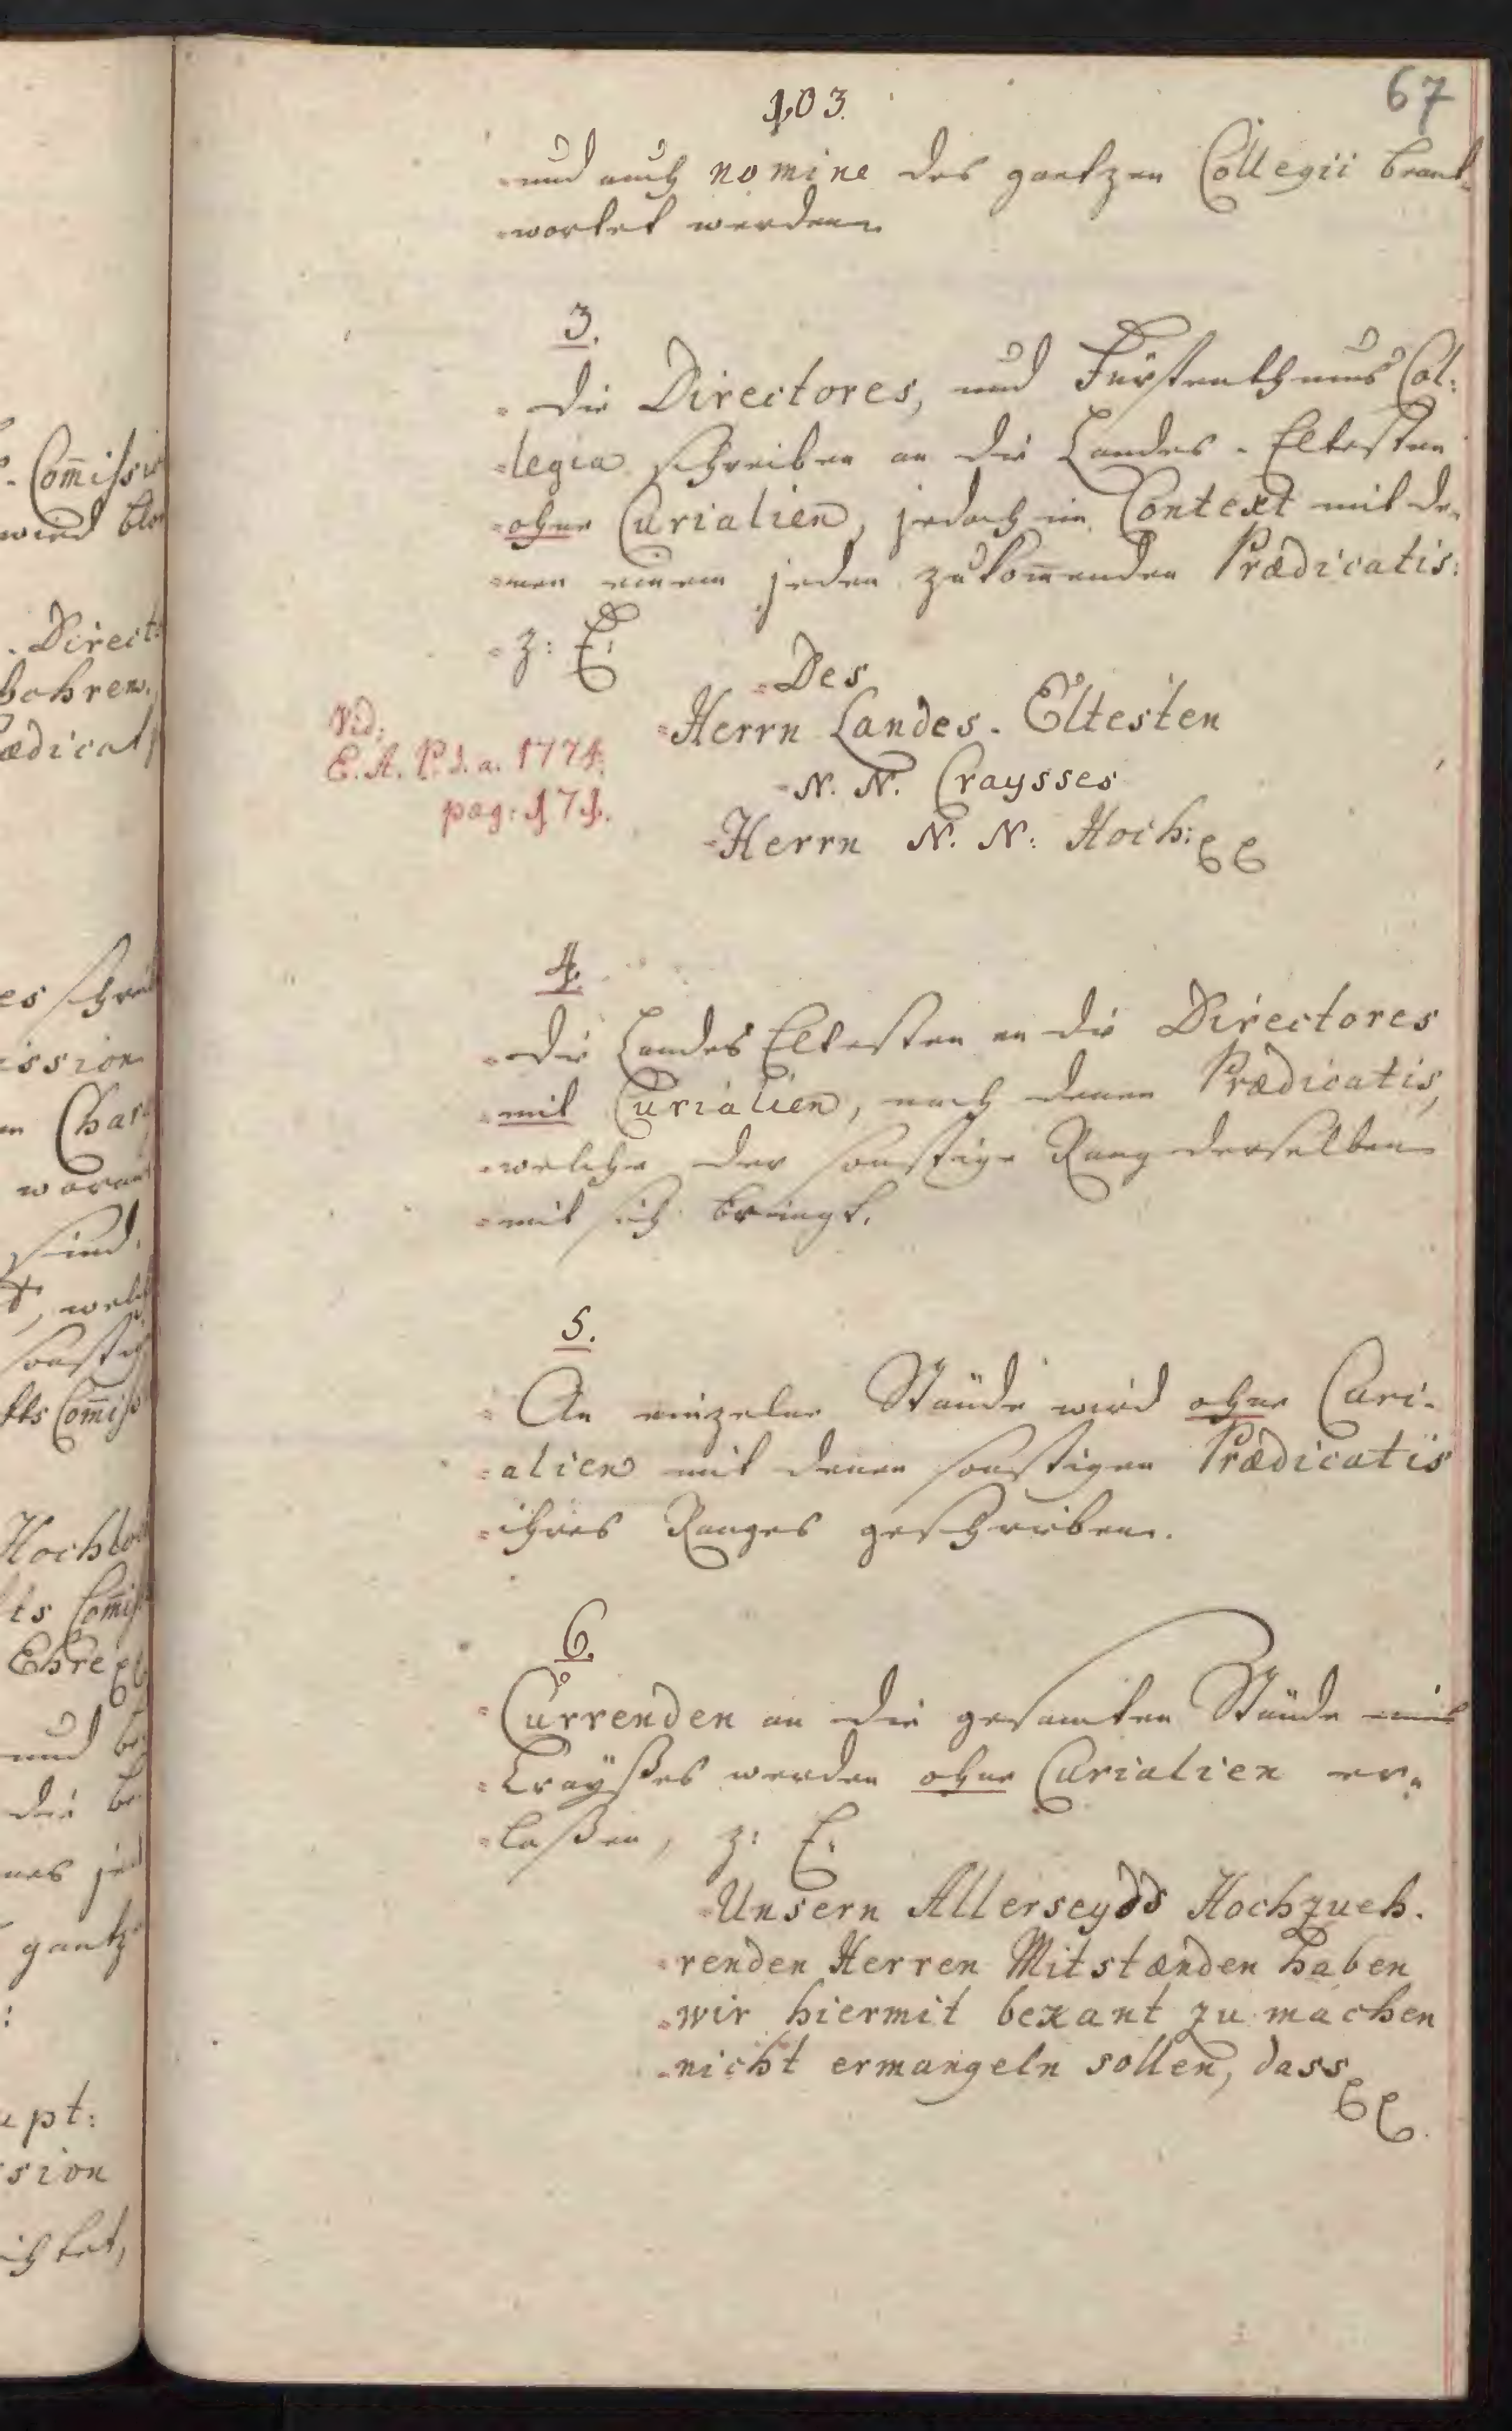 103.
67
und auch nomine des gantzen Collegii beant=
=wortet werden.
3.
=Die Directores, und Fürstenthums Col:
=legia schreiben an die Landes=Eltesten
=ohne Curialien, jedoch im Context mit de=
=nen einem jeden zukom̅enden Prædicatis:
=z: E:
=Des
=Herrn Landes=Eltesten
=N. N. Craysses
=Herrn N. N: Hoch:
Vid:
E. A. P. d. a. 1774.
pag: 171.
4.
=Die Landes Eltesten an die Directores
=mit Curialien, nach denen Prædicatis,
=welche der sonstige Rang derselben
=mit sich bringt.
5.
=An einzelne Stände wird ohne Curi=
=alien mit denen sonstigen Prædicatis
=ihres Ranges geschrieben.
6.
=Currenden an die gesamten Stände
=Crayßes werden ohne Curialien er=
=laßen, z: E:
=Unsern Allerseyds Hochzueh=
=renden Herren Mitstænden haben
=wir hiermit bekant zu machen
=nicht ermangeln sollen, dass